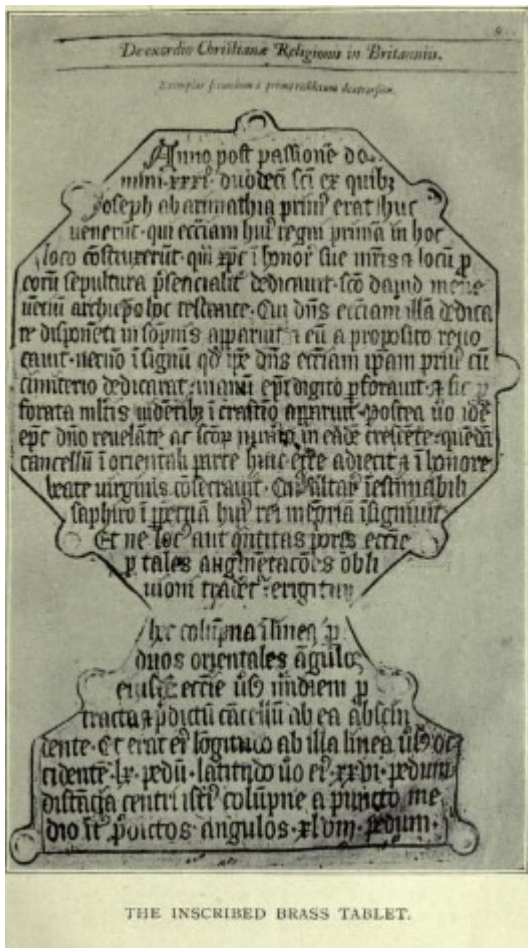 De exordio Christianæ Religionis in Britanniis.
Exemplar secundum a primo redditum
Anno post passionē do
mini xxxi° duodeci sci ex quibz
Joseph ab arimathia prim⁹ erat huc
venerūt · qui eccīam hui⁹ regni primā in hoc
loco cōstruxerūt · in honorē sue mris & locū p
eorū sepultura psencialit dedicauit · sco dauid mene
uenciū archiepo hoc testante · Cui dns eccīam illā dedica
re disponēti in sōpnis apparuit & eū a proposito reuo
cauit · necnō ī signū qd ipe dns eccīam ipam priu⁹ cū
cimiterio dedicarat · manū epi digito pforauit & sic p
forata mltis uidētibz ī crastīo apparuit · postea uo idē
epc dno reuelāte ac scōr numero in eadē crescēte · quēdā
cancellū ī orientali parte huic eccīe adiecit & ī honore
beate uirginis cōsecrauit · Cui⁹ altar īestimabili
saphiro ī ppetuā hui⁹ rei memoriā īsigniuit
Et ne loc⁹ aut qntitas prioris eccīe
p tales augmētacōes obli
uioni tradet erigitur
hec colūpna ī linea p
duos orientales āgulos
eiusdē eccīe us⁹ midiem p
tracta & pdictū cācellū ab ea absciu
dente · Et erat ei⁹ lōgitudo ab illa linea us⁹ oc
cidentē · lx · pedū · latitudo uo ei⁹ · xxvi · pedum
distācia centri isti⁹ colūpne a puncto me
dio īt pdictos angulos · xlviii · pedum ·
THE INSCRIBED BRASS TABLET.